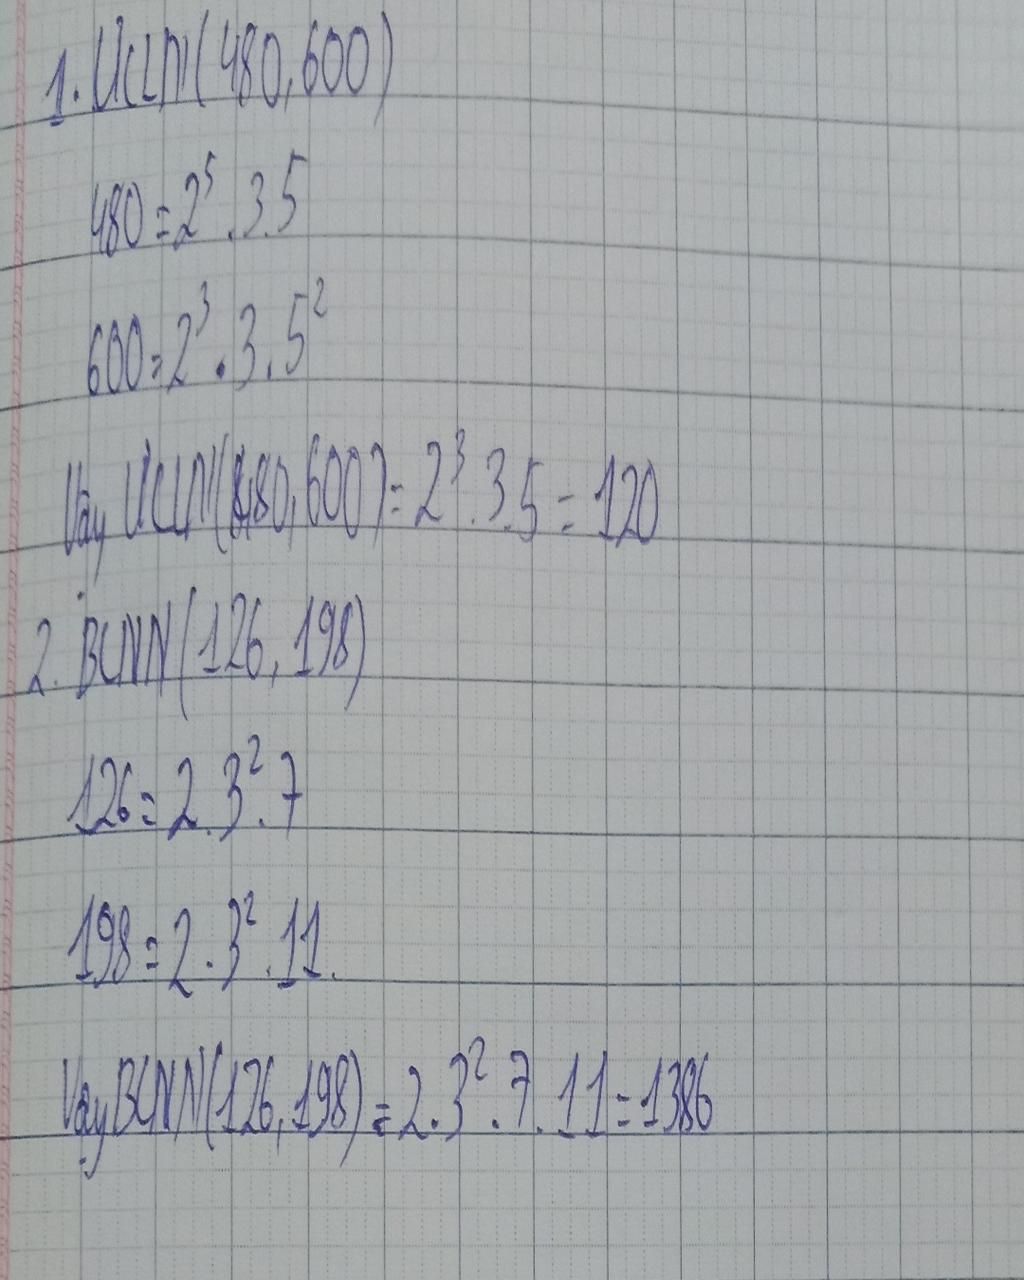 1. ƯCLN(480,600)
480=2⁵.3.5
600=2³.3.5²
Vậy ƯCLN(480,600)=2³.3.5=120
2. BCNN(126,198)
126=2.3².7
198=2.3².11.
Vậy BCNN(126,198)=2.3².7.11=1386